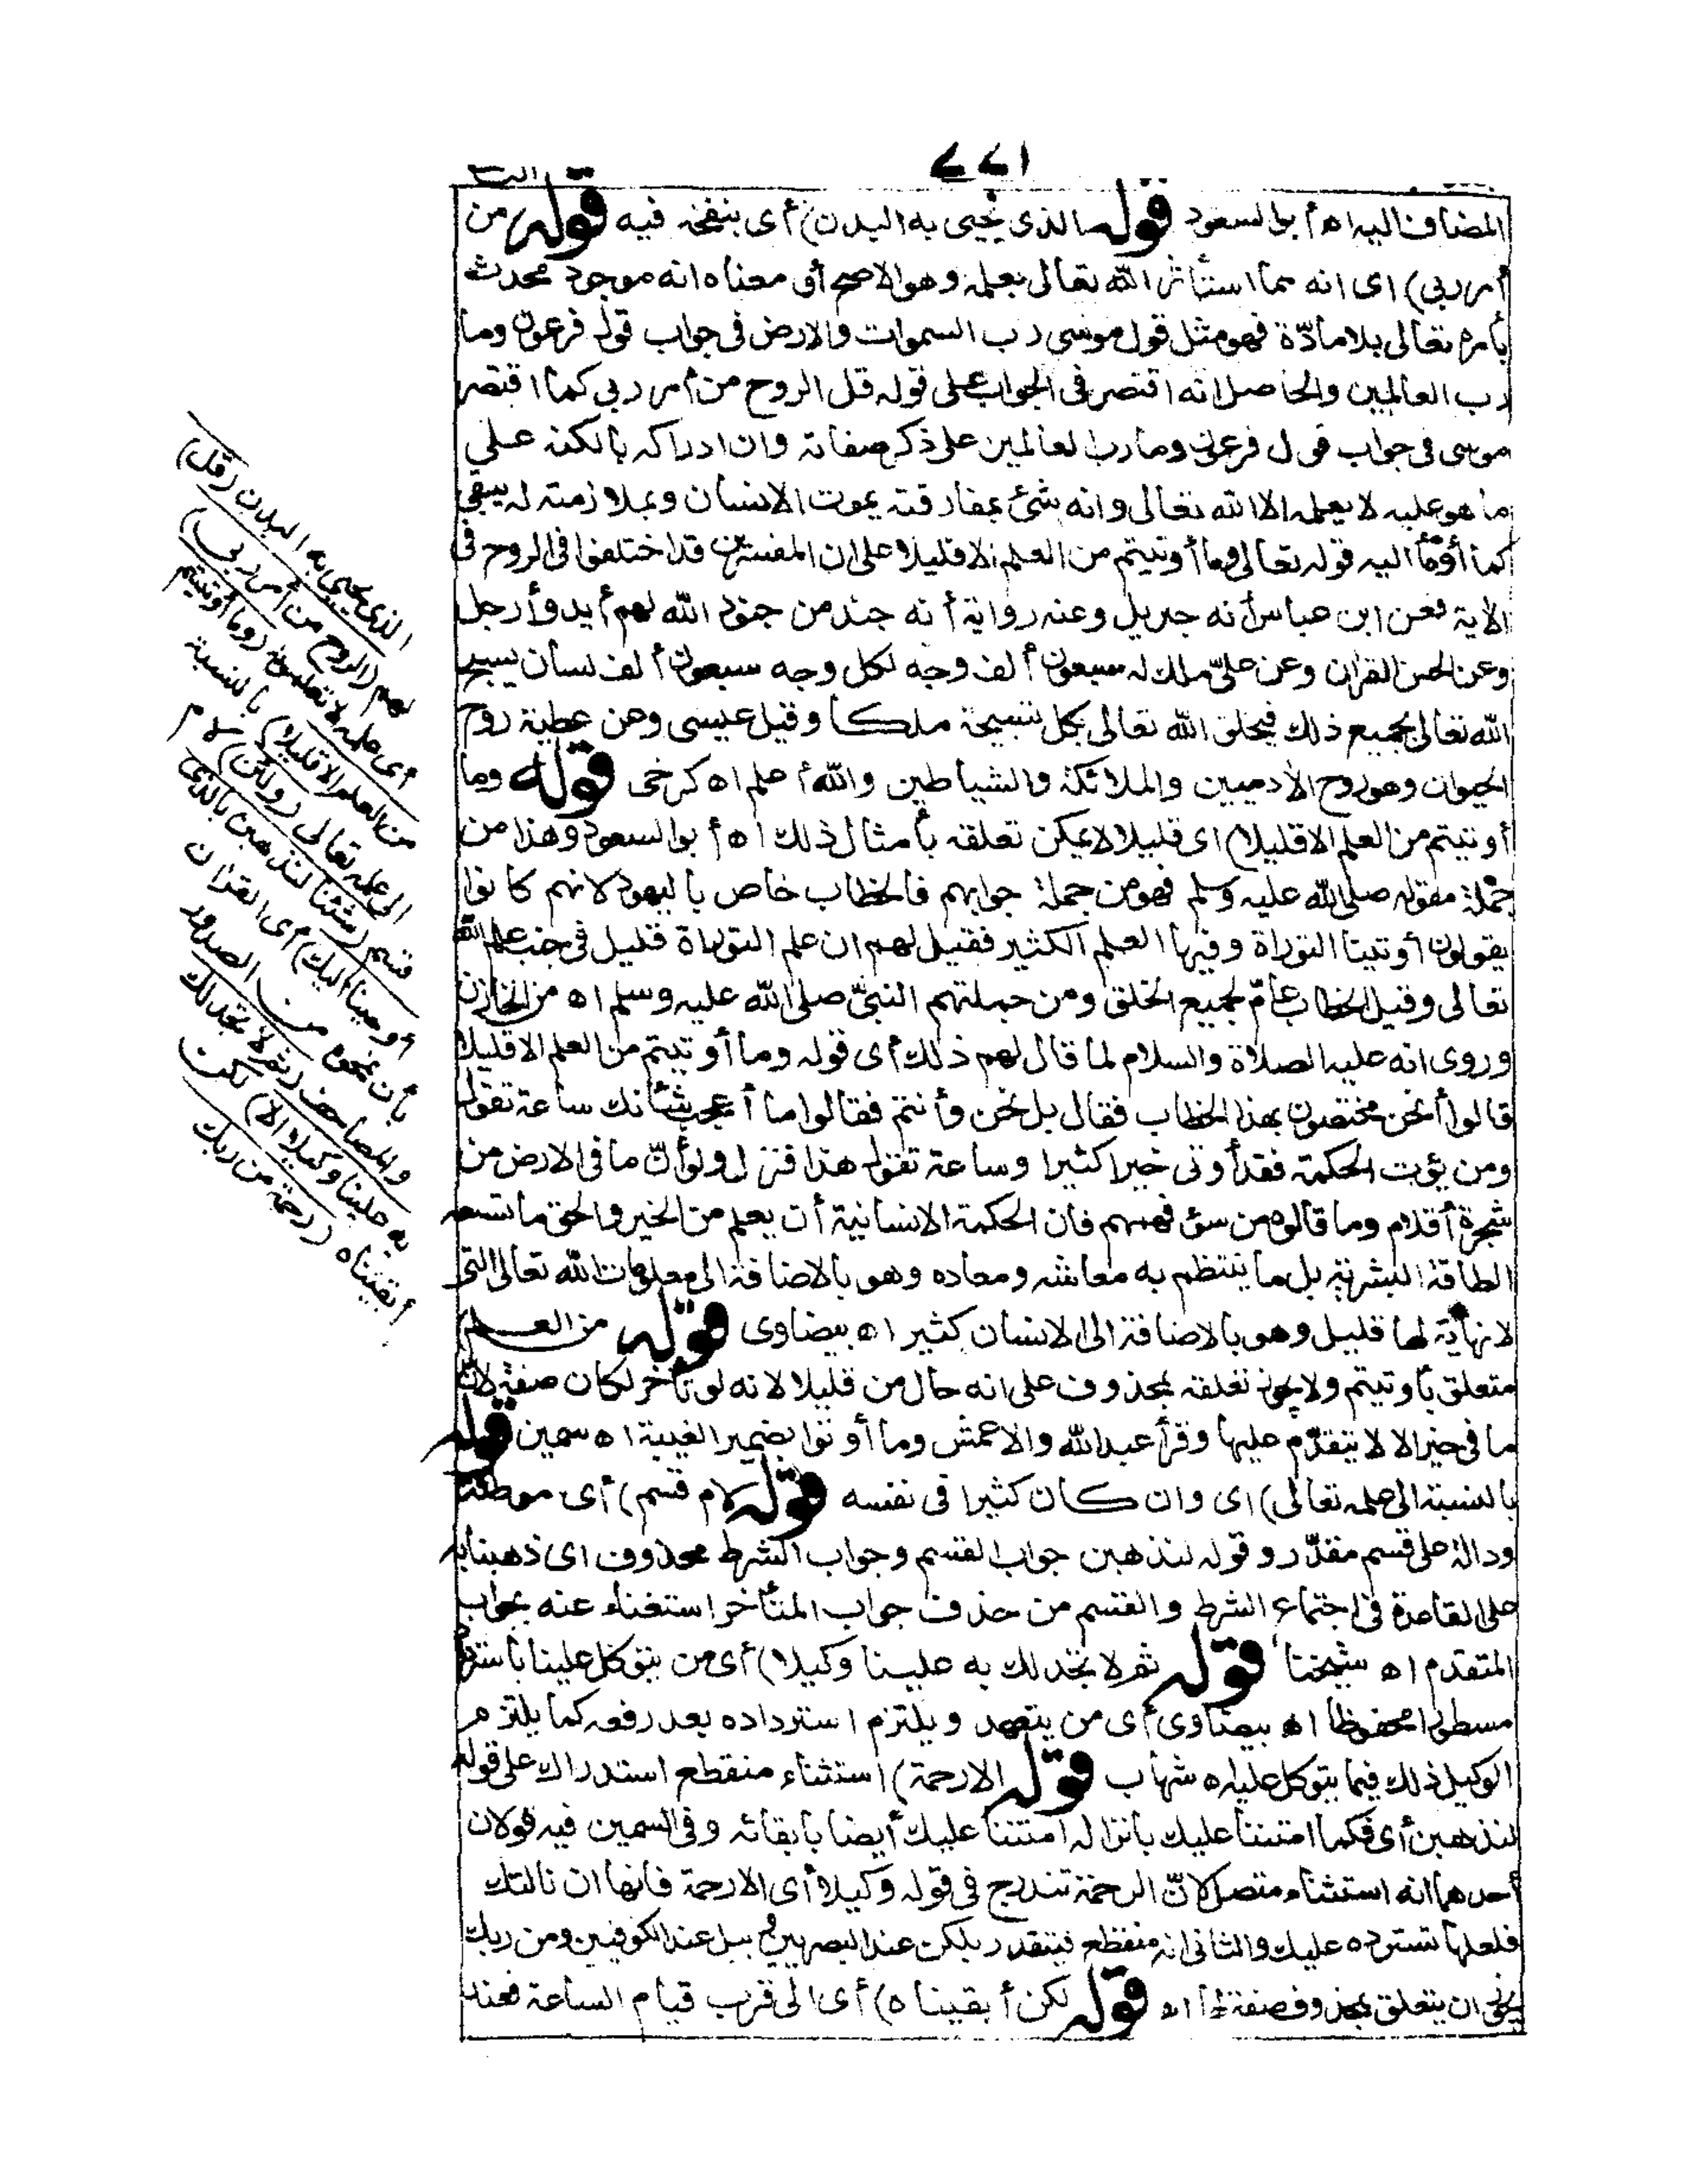 المضاف اليه اه أبو السعود قوله الذى يحيى به البدن) أى بنفخه فيه قوله من
أمر ربي) اى انه مما استأثر الله تعالى بعلمه وهو الاصح أو معناه انه موجود محدث
بأمره تعالى بلا مادّة فهو مثل قول موسى رب السموات والارض فى جواب قول فرعون وما
رب العالمين والحاصل انه اقتصر فى الجواب على قوله قل الروح من أمر ربي كما اقتصر
موسى فى جواب قول فرعون وما رب العالمين على ذكر صفاته وان ادراكه بالكنه على
ما هو عليه لا يعلمه الا الله تعالى وانه شئ بمفارقته يموت الانسان وبملازمته له يبقى
كما أومأ اليه قوله تعالى وما أوتيتم من العلم الا قليلا على ان المفسرين قد اختلفوا فى الروح فى
الاية فعن ابن عباس أنه جبريل وعنه رواية أنه جند من جنود الله لهم أيد وأرجل
وعن الحسن القران وعن علىّ ملك له سبعون ألف وجه لكل وجه سبعون ألف لسان يسبح
الله تعالى بجميع ذلك فيخلق الله تعالى بكل تسبيحة ملكا وقيل عيسى وعن عطية روح
الحيوان وهو روح الادميين والملائكة والشياطين والله أعلم اه كرخى قوله وما
أوتيتم من العلم الا قليلا) اى قليلا لا يمكن تعلقه بأمثال ذلك اه أبو السعود وهذا من
جملة مقوله صلى الله عليه وسلم فهو من جملة جوابهم فالخطاب خاص باليهود لانهم كانوا
يقولون أوتينا التوراة وفيها العلم الكثير فقيل لهم ان علم التوراة قليل فى جنب علم الله
تعالى وقيل الخطاب عامّ لجميع الخلق ومن جملتهم النبىّ صلى الله عليه وسلم اه من الخازن
وروى انه عليه الصلاة والسلام لما قال لهم ذلك أى قوله وما أوتيتم من العلم الا قليلا
قالوا أنحن مختصون بهذا الخطاب فقال بل نحن وأنتم فقالوا ما أعجب شأنك ساعة تقول
ومن يؤت الحكمة فقد أوتى خيرا كثيرا وساعة تقول هذا فنزل ولو أنّ ما فى الارض من
شجرة أقلام وما قالوه من سوء فهمهم فان الحكمة الانسانية أن يعلم من الخير والحق ما تسعه
الطاقة البشرية بل ما ينتظم به معاشه ومعاده وهو بالاضافة الى معلومات الله تعالى التى
لا نهاية لها قليل وهو بالاضافة الى الانسان كثير اه بيضاوى قوله من العلم)
متعلق بأوتيتم ولا يجوز تعلقه بمحذوف على انه حال من قليلا لانه لو تأخر لكان صفة لان
ما فى حيز الا لا يتقدّم عليها وقرأ عبد الله والاعمش وما أوتوا بضمير الغيبة اه سمين قوله
بالنسبة الى علمه تعالى) اى وان كان كثيرا فى نفسه قوله لام قسم) أى موطئة
ودالة على قسم مقدّر وقوله لنذهبن جواب القسم وجواب الشرط محذوف اى ذهبنا به
على القاعدة فى اجتماع الشرط والقسم من حذف جواب المتأخر استغناء عنه بجواب
المتقدم اه شيخنا قوله ثم لا تجد لك به علينا وكيلا) أى من يتوكل علينا باسترداده
مسطورا محفوظا اه بيضاوى أى من يتعهد ويلتزم استرداده بعد رفعه كما يلتزم
الوكيل ذلك فيما يتوكل عليه اه شهاب قوله الا رحمة) استثناء منقطع استدراك على قوله
لنذهبن أى فكما امتننا عليك بانزاله امتننا عليك أيضا بابقائه وفى السمين فيه قولان
أحدهما انه استثناء متصل لانّ الرحمة تندرج فى قوله وكيلا أى الا رحمة فانها ان نالتك
فلعلها تسترده عليك والثانى انه منقطع فيتقدر بلكن عند البصريين وببل عند الكوفيين ومن ربك
يجوز ان يتعلق بمحذوف صفة لها اه قوله لكن أبقيناه) أى الى قرب قيام الساعة فعند
الذى يحيى به البدن (قل)
لهم (الروح من أمر ربي)
أى علمه لا تعلمونه (وما أوتيتم
من العلم الا قليلا) بالنسبة
الى علمه تعالى (ولئن) لام
قسم (شئنا لنذهبن بالذى
أوحينا اليك) أى القران
بأن نمحوه من الصدور
والمصاحف (ثم لا تجد لك
به علينا وكيلا الا) لكن
أبقيناه (رحمة من ربك